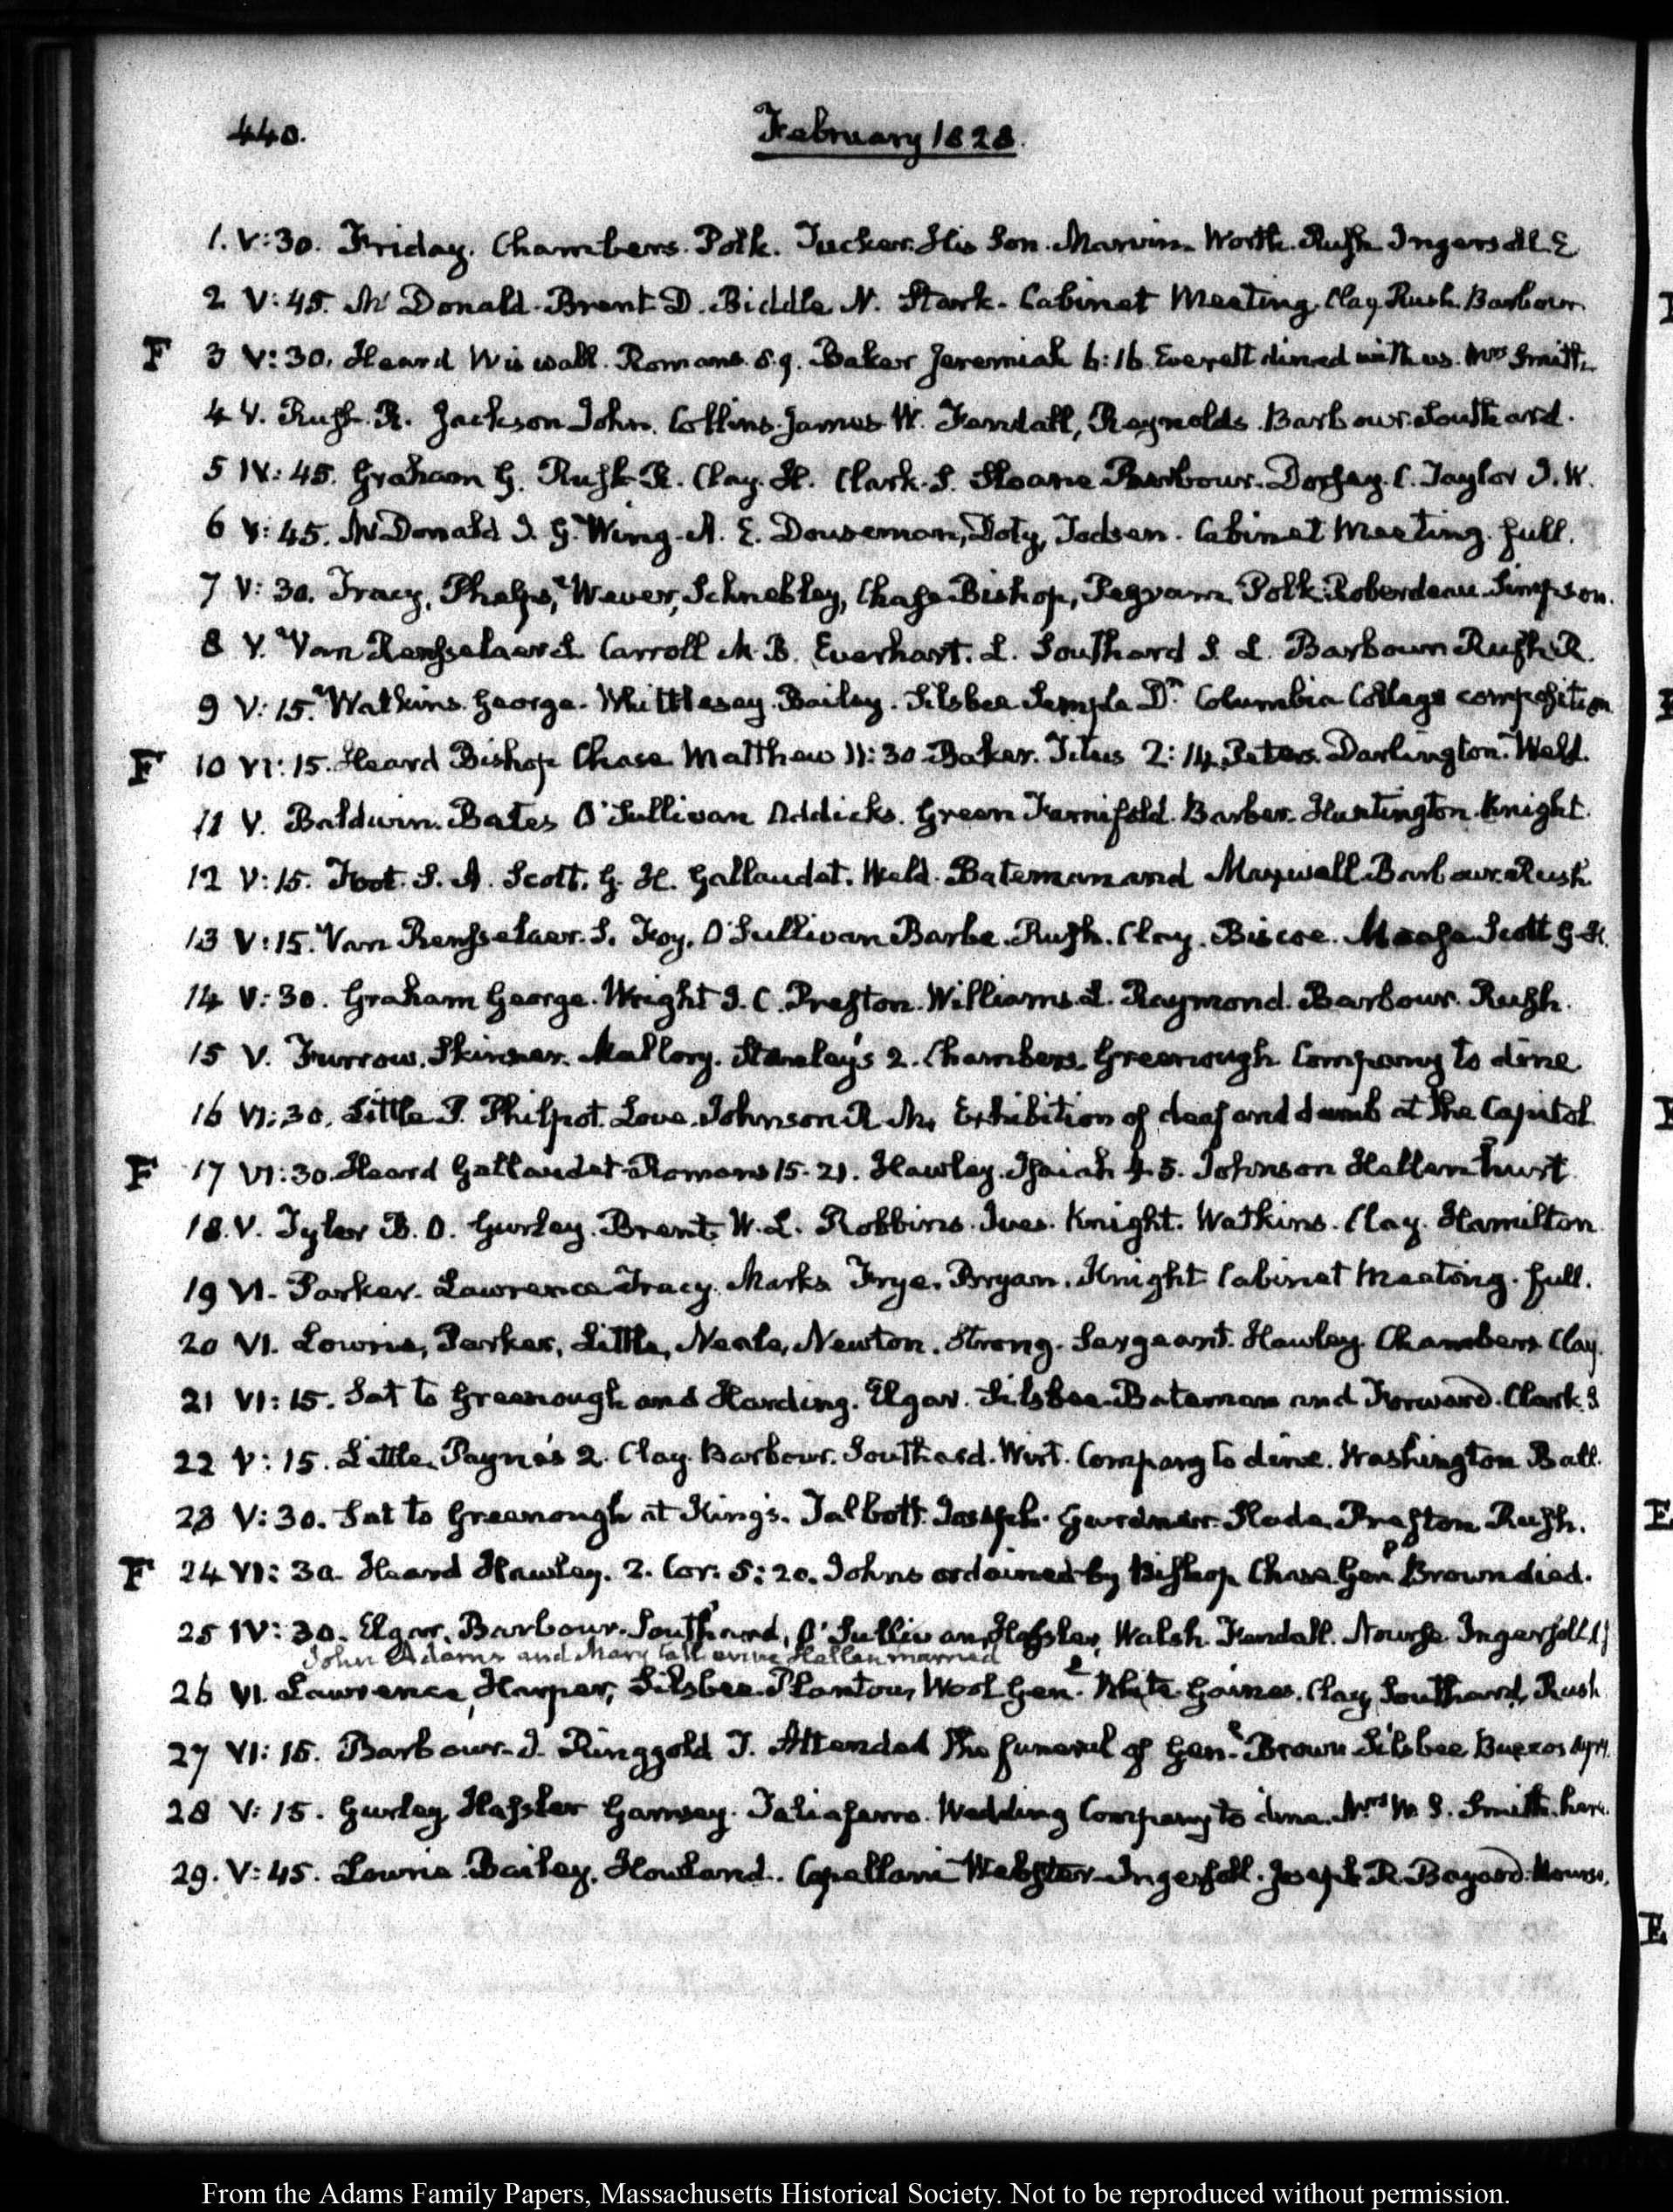 440.
February 1828.
1. V:30. Friday. Chambers. Polk. Tucker. His Son. Marvin. Worth. Rush Ingersoll. E
2 V:45. McDonald. Brent D. Biddle N. Stark. Cabinet Meeting. Clay, Rush, Barbour
F 3 V:30. Heard Wiswall. Romans 8.9. Baker Jeremiah 6:16. Everett dined with us. Mrs Smith
4 V. Rush. R. Jackson John. Collins. James W. Kendall, Reynolds. Barbour. Southard.
5 IV:45. Graham G. Rush R. Clay. H. Clark. S. Sloane Barbour. Dorsey. C. Taylor J. W.
6 V:45. McDonald J. G. Wing. A. E. Douseman, Doty, Cabinet Meeting. full.
7 V:30. Tracy, Phelps, Wever, Schnebley, Chase Bishop, Pegram, Polk. Roberdeau. Simpson.
8 V. Van Rensselaer S. Carroll M. B. Everhart. L. Southard S. L. Barbour Rush R.
9 V:15. Watkins. George. Whittlesey. Bailey. Silsbee Semple Dr. Columbia College composition
F 10 VI:15. Heard Bishop Chase Matthew 11:30. Baker. Titus 2:14. Peters. Darlington. Weld.
11 V. Baldwin. Bates O'Sullivan Addicks. Green Barber. Huntington. Knight.
12 V:15. Foot. S. A. Scott. G. H. Gallaudet. Weld. Bateman and Maxwell. Barbour. Rush
13 V:15. Van Rensselaer. S. Foy. O'Sullivan Barbe. Rush. Clay. Biscoe. Scott G. H.
14 V:30. Graham George. Wright J. C. Preston. Williams. L. Raymond. Barbour. Rush.
15 V. Furrow. Skinner. Mallory. Stanley's 2. Chambers. Greenough. Company to dine
16 VI:30. Little P. Philpot. Love. Johnson R. M. Exhibition of deaf and dumb at the Capitol
F 17 VI:30. Heard Gallaudet Romans 15. 21. Hawley. Isaiah 4. 5. Johnson Hellen hurt
18. V. Tyler B. O. Gurley. Brent W. L. Robbins. Ives. Knight. Watkins. Clay. Hamilton
19 VI. Parker. Lawrence Tracy. Marks Frye. Bryan. Knight Cabinet Meeting. full.
20 VI. Lowrie, Parker, Little, Neale, Newton. Strong. Sergeant. Hawley. Chambers Clay.
21 VI:15. Sat to Greenough and Harding. Elgar. Silsbee. Bateman and Forward. Clark. S
22 V:15. Little. Payne's 2. Clay. Barbour. Southard. Wirt. Company to dine. Washington Ball.
23 V:30. Sat to Greenough at King's. Talbott. Joseph. Slade. Preston Rush.
F 24 VI:30. Heard Hawley. 2. Cor: 5:20. Johns ordained by Bishop Chase. Genl Brown died.
25 IV:30. Elgar. Barbour. Southard, O'Sullivan, Hassler, Walsh. Kendall. Nourse. Ingersoll
John Adams and Mary Catherine Hellen married
26 VI. Lawrence, Harper, Silsbee. Plantou, Wool Genl. White. Gaines. Clay, Southard, Rush
27 VI:15. Barbour. J. Ringgold T. Attended the funeral of Genl. Brown Silsbee Buenos Ayres.
28 V:15. Gurley Hassler Taliaferro. Wedding Company to dine. Mrs W. S. Smith. here.
29. V:45. Lowrie. Bailey. Howland. Capellani Webster. Ingersoll. Joseph R. Bayard. Nourse.
From the Adams Family Papers, Massachusetts Historical Society. Not to be reproduced without permission.